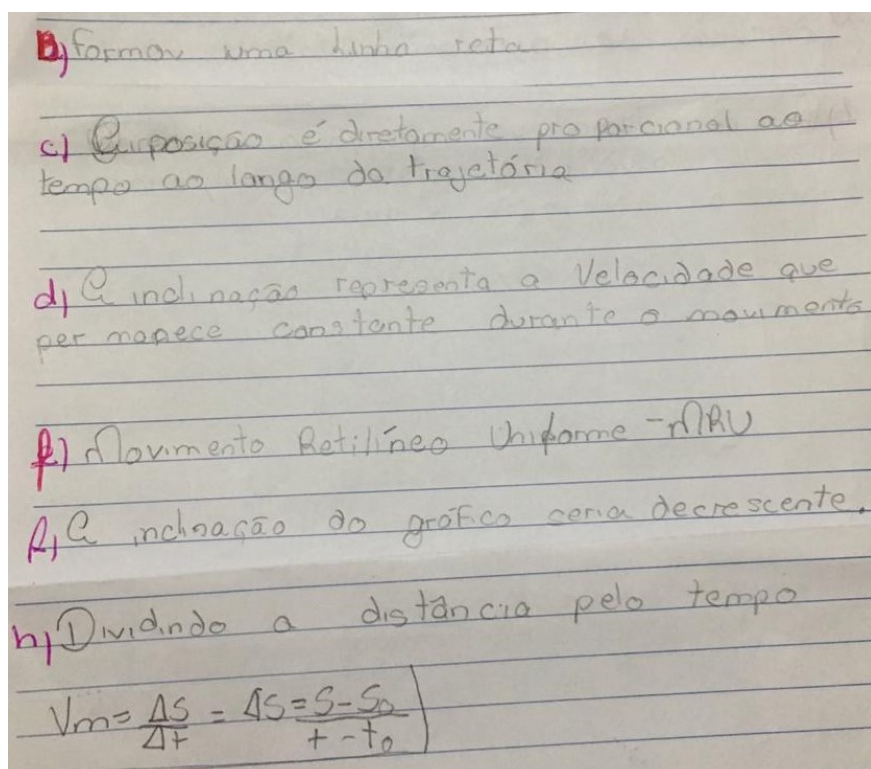 B) formou uma linha reta
c) A posição é diretamente proporcional ao
tempo ao longo da trajetória
d) A inclinação representa a Velocidade que
permanece constante durante o movimento
f) Movimento Retilíneo Uniforme - MRU
f) A inclinação do gráfico seria decrescente.
h) Dividindo a distância pelo tempo
Vm = ΔS/Δt = ΔS = S - S₀/t - t₀